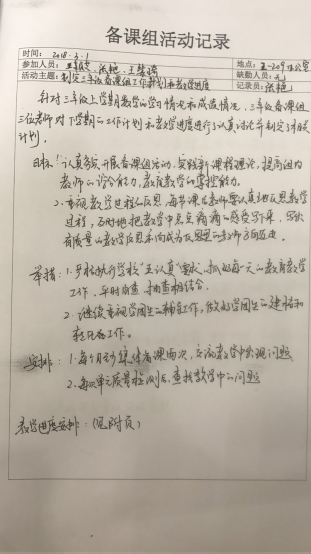 备课组活动记录
时间：2018.3.1 地点：五-209办公室
参加人员： 张艳、王 缺勤人员：无
活动主题：制定三年级备课组工作计划和教学进度 记录员：张艳
针对三年级上学期教学的学习情况和成绩情况，三年级备课组
三位老师对下学期的工作计划和教学进度进行了认真讨论并制定了相关
计划。
目标：1.认真务实开展备课组活动，实践新课程理论，提高组内
教师的综合能力，教育教学的掌控能力。
2.重视教学过程的反思，每节课后老师要认真地反思教学
过程，及时地把教学中点点滴滴的感受写下来，写出
有质量的教学反思，向成为反思型的教师方向迈进。
举措：1.严格执行学校“五认真”要求，抓好每一天的教育教学
工作，平时自查，抽查相结合。
2.继续重视学困生的辅导工作，做好学困生的建档和
转化工作。
安排：1.每个月至少集体备课两次，交流教学中出现问题
2.每次单元质量检测后，查找教学中的问题
教学进度安排：（见附页）